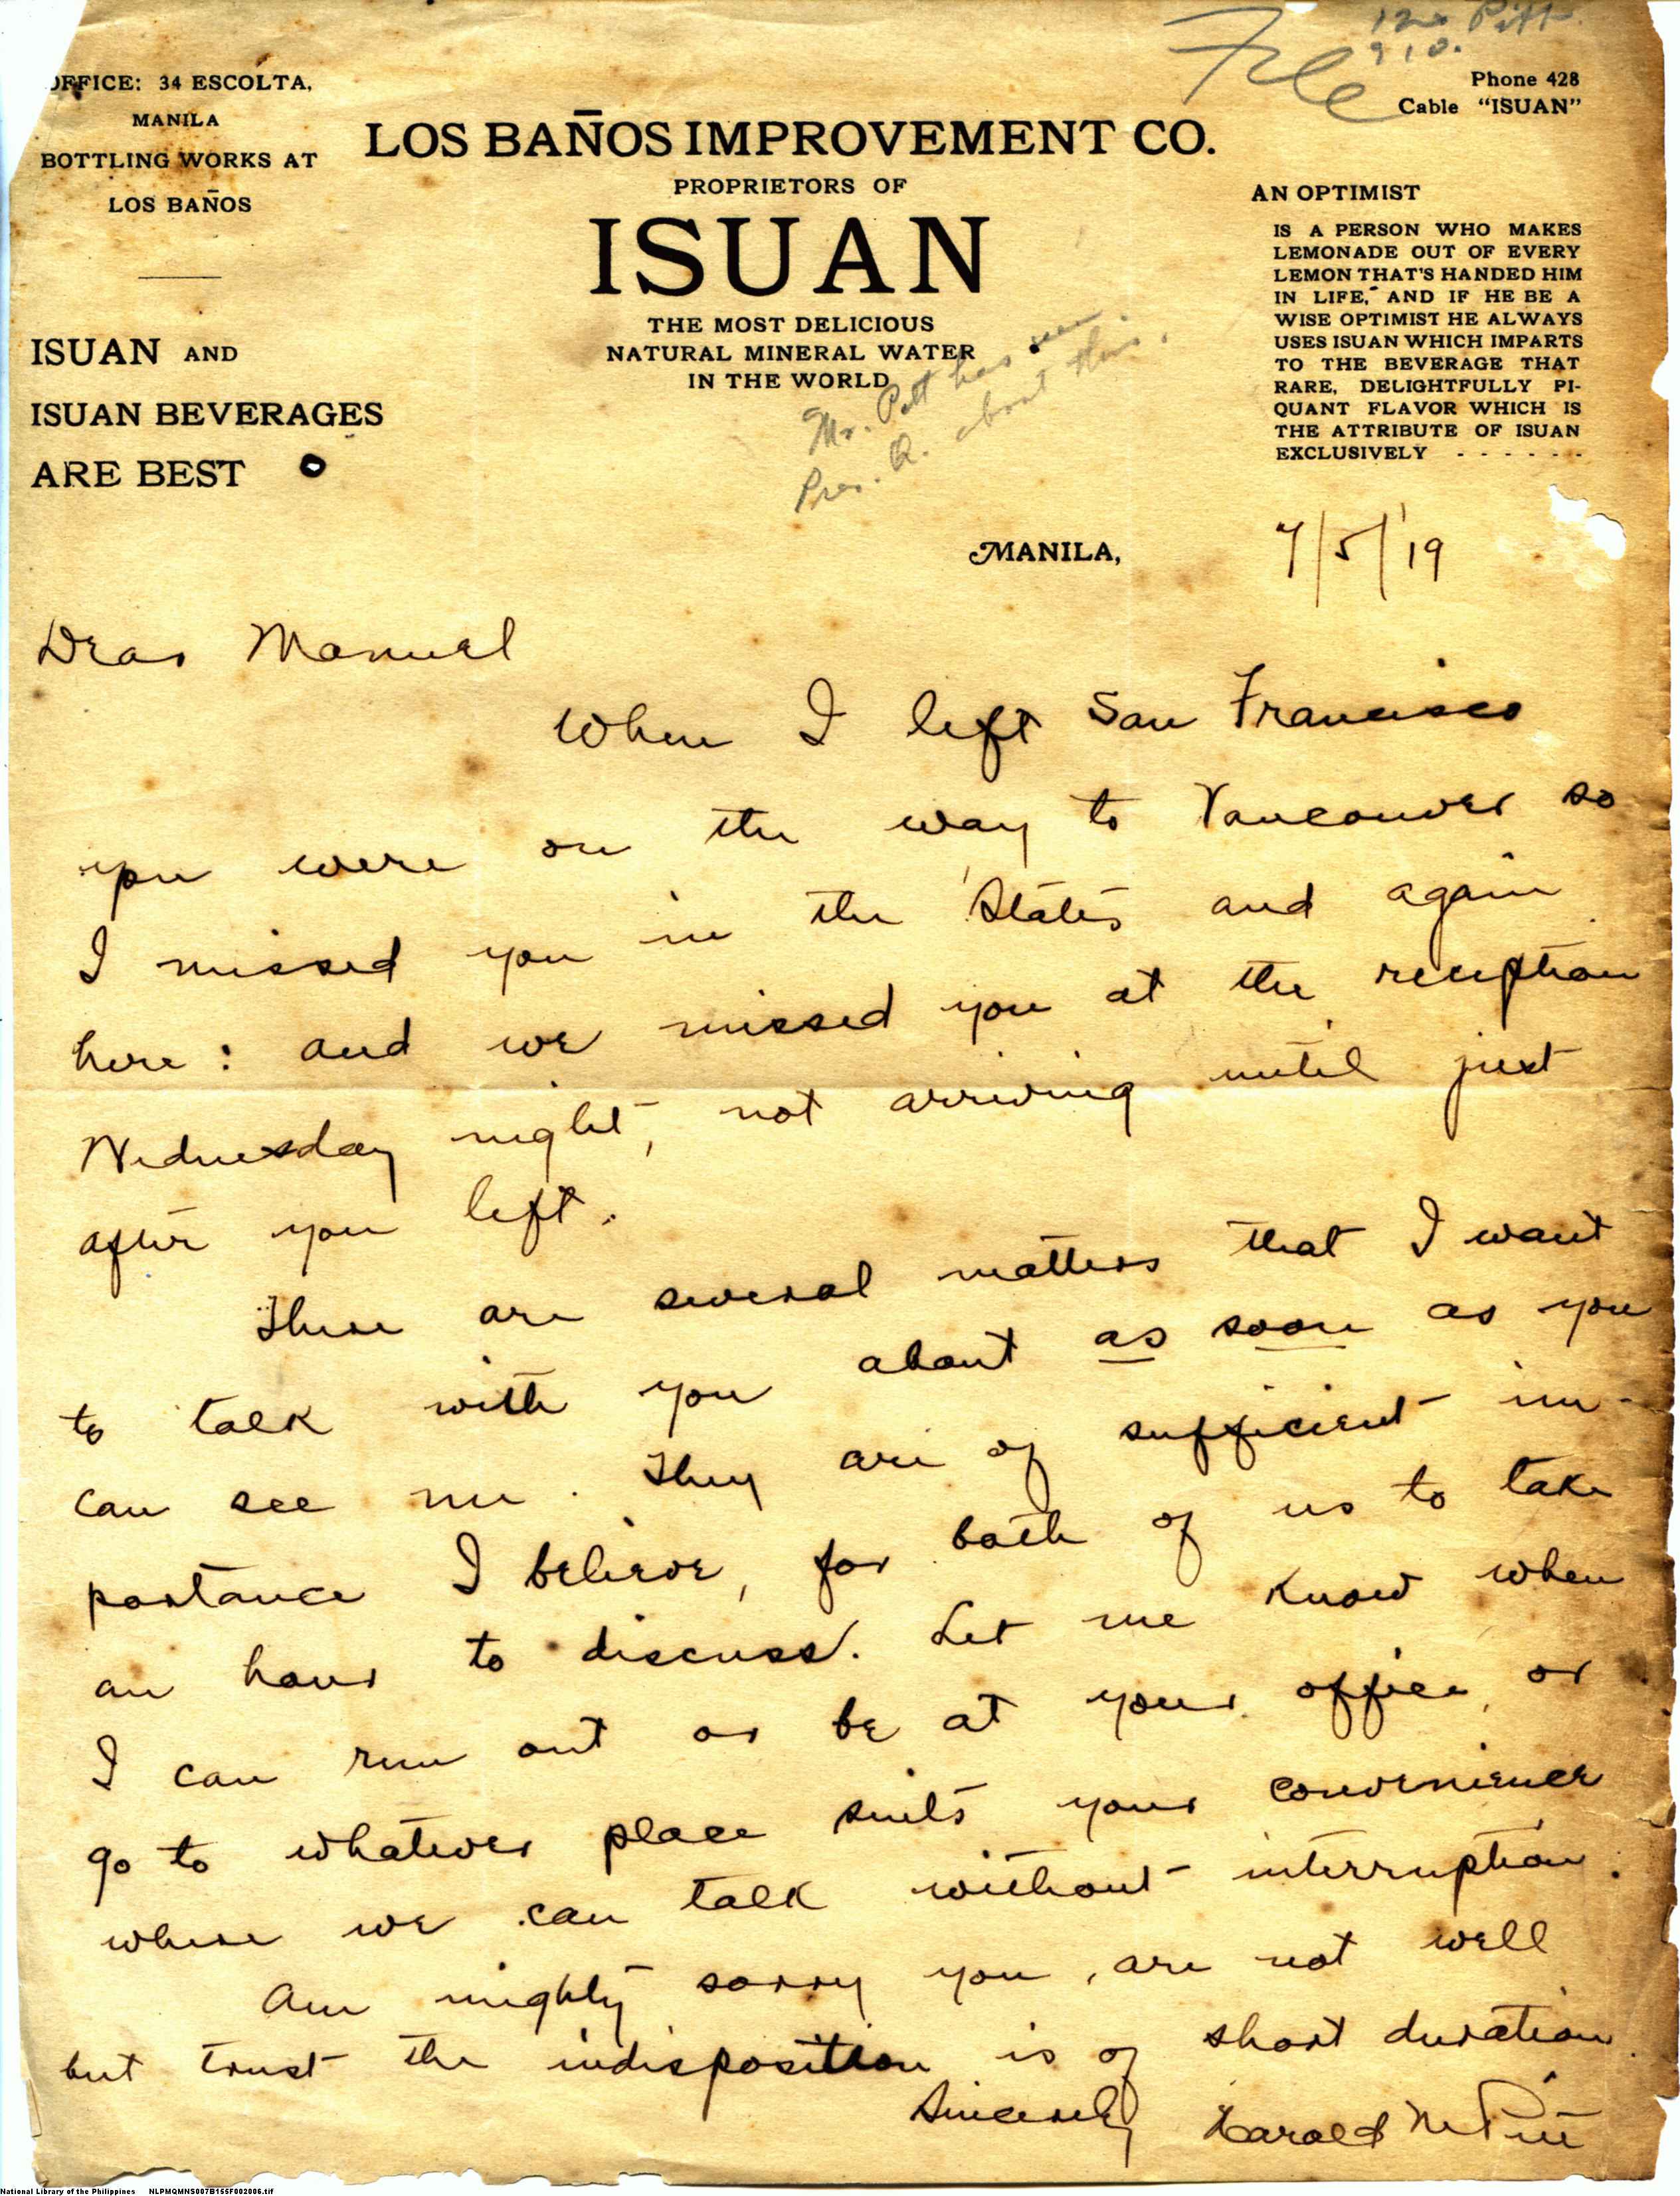 File
Pitt
OFFICE: 34 ESCOLTA,
MANILA
BOTTLING WORKS AT
LOS BAÑOS
ISUAN AND
ISUAN BEVERAGES
ARE BEST
LOS BAÑOS IMPROVEMENT CO.
PROPRIETORS OF
ISUAN
THE MOST DELICIOUS
NATURAL MINERAL WATER
IN THE WORLD
Phone 428
Cable "ISUAN"
AN OPTIMIST
IS A PERSON WHO MAKES
LEMONADE OUT OF EVERY
LEMON THAT'S HANDED HIM
IN LIFE, AND IF HE BE A
WISE OPTIMIST HE ALWAYS
USES ISUAN WHICH IMPARTS
TO THE BEVERAGE THAT
RARE, DELIGHTFULLY PI-
QUANT FLAVOR WHICH IS
THE ATTRIBUTE OF ISUAN
EXCLUSIVELY - - - - - -
Mr. Pitt has seen
Pres. Q. about this.
MANILA, 7/5/'19
Dear Manuel
When I left San Francisco
you were on the way to Vancouver so
I missed you in the States and again
here: and we missed you at the reception
Wednesday night, not arriving until just
after you left.
There are several matters that I want
to talk with you about as soon as you
can see me. They are of sufficient im-
portance I believe, for both of us to take
an hour to discuss. Let me know when
I can run out or be at your office, or
go to whatever place suits your convenience
where we can talk without interruption.
Am mighty sorry you are not well
but trust the indisposition is of short duration.
Sincerely Harold M Pitt
National Library of the Philippines NLPMQMNS007B155F002006.tif